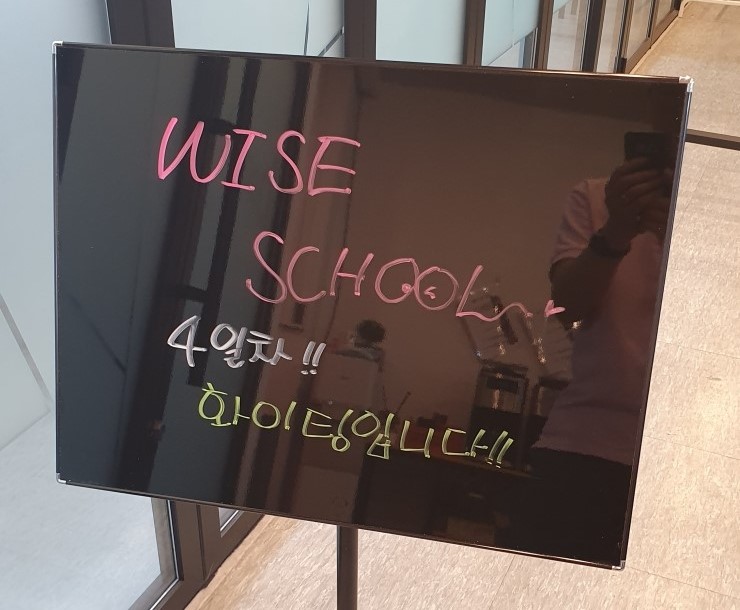 WISE
SCHOOL
4일차!!
화이팅입니다!!